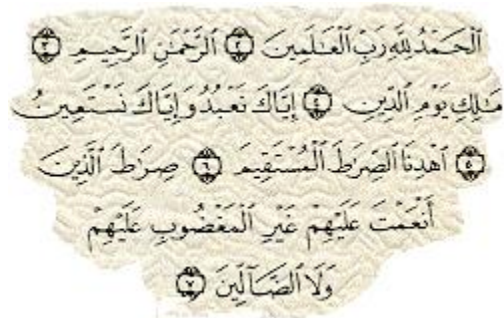 ٱلْحَمْدُ لِلَّهِ رَبِّ ٱلْعَـٰلَمِينَ ﴿٢﴾ ٱلرَّحْمَـٰنِ ٱلرَّحِيمِ ﴿٣﴾
مَـٰلِكِ يَوْمِ ٱلدِّينِ ﴿٤﴾ إِيَّاكَ نَعْبُدُ وَإِيَّاكَ نَسْتَعِينُ
﴿٥﴾ ٱهْدِنَا ٱلصِّرَٰطَ ٱلْمُسْتَقِيمَ ﴿٦﴾ صِرَٰطَ ٱلَّذِينَ
أَنْعَمْتَ عَلَيْهِمْ غَيْرِ ٱلْمَغْضُوبِ عَلَيْهِمْ
وَلَا ٱلضَّآلِّينَ ﴿٧﴾